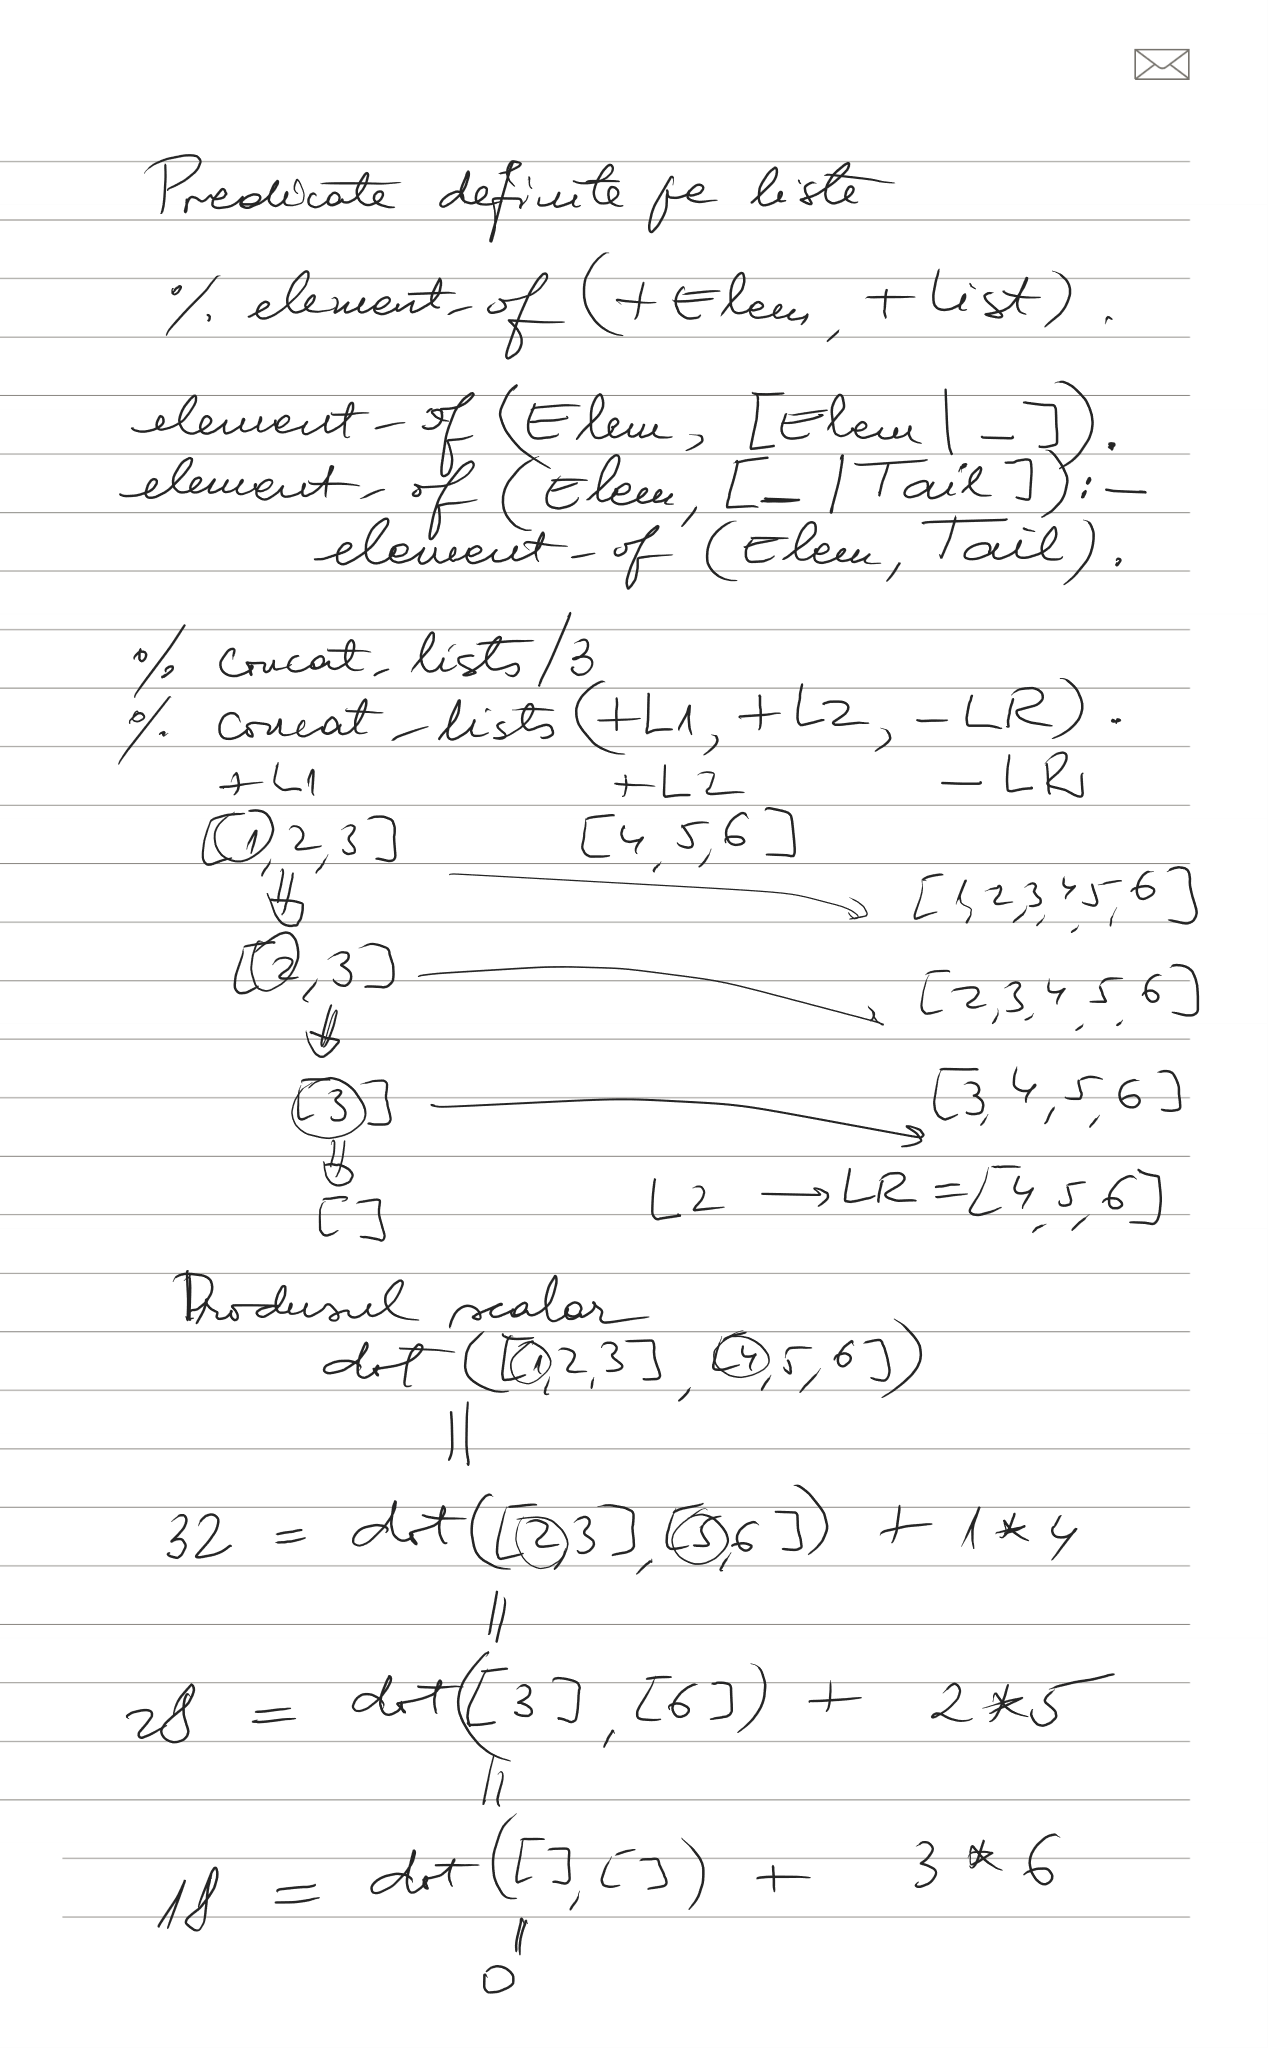 Predicate definite pe liste
% element_of (+Elem, +List).
element_of (Elem, [Elem | _]).
element_of (Elem, [_ | Tail]) :-
element_of (Elem, Tail).
% concat_lists/3
% concat_lists (+L1, +L2, -LR).
+L1 +L2 -LR
[1, 2, 3] [4, 5, 6]
[1, 2, 3, 4, 5, 6]
[2, 3] [2, 3, 4, 5, 6]
[3] [3, 4, 5, 6]
[] L2 → LR = [4, 5, 6]
Produsul scalar
dot ([1, 2, 3], [4, 5, 6])
||
32 = dot([2, 3], [5, 6]) + 1 * 4
||
28 = dot([3], [6]) + 2 * 5
||
18 = dot([], []) + 3 * 6
||
0